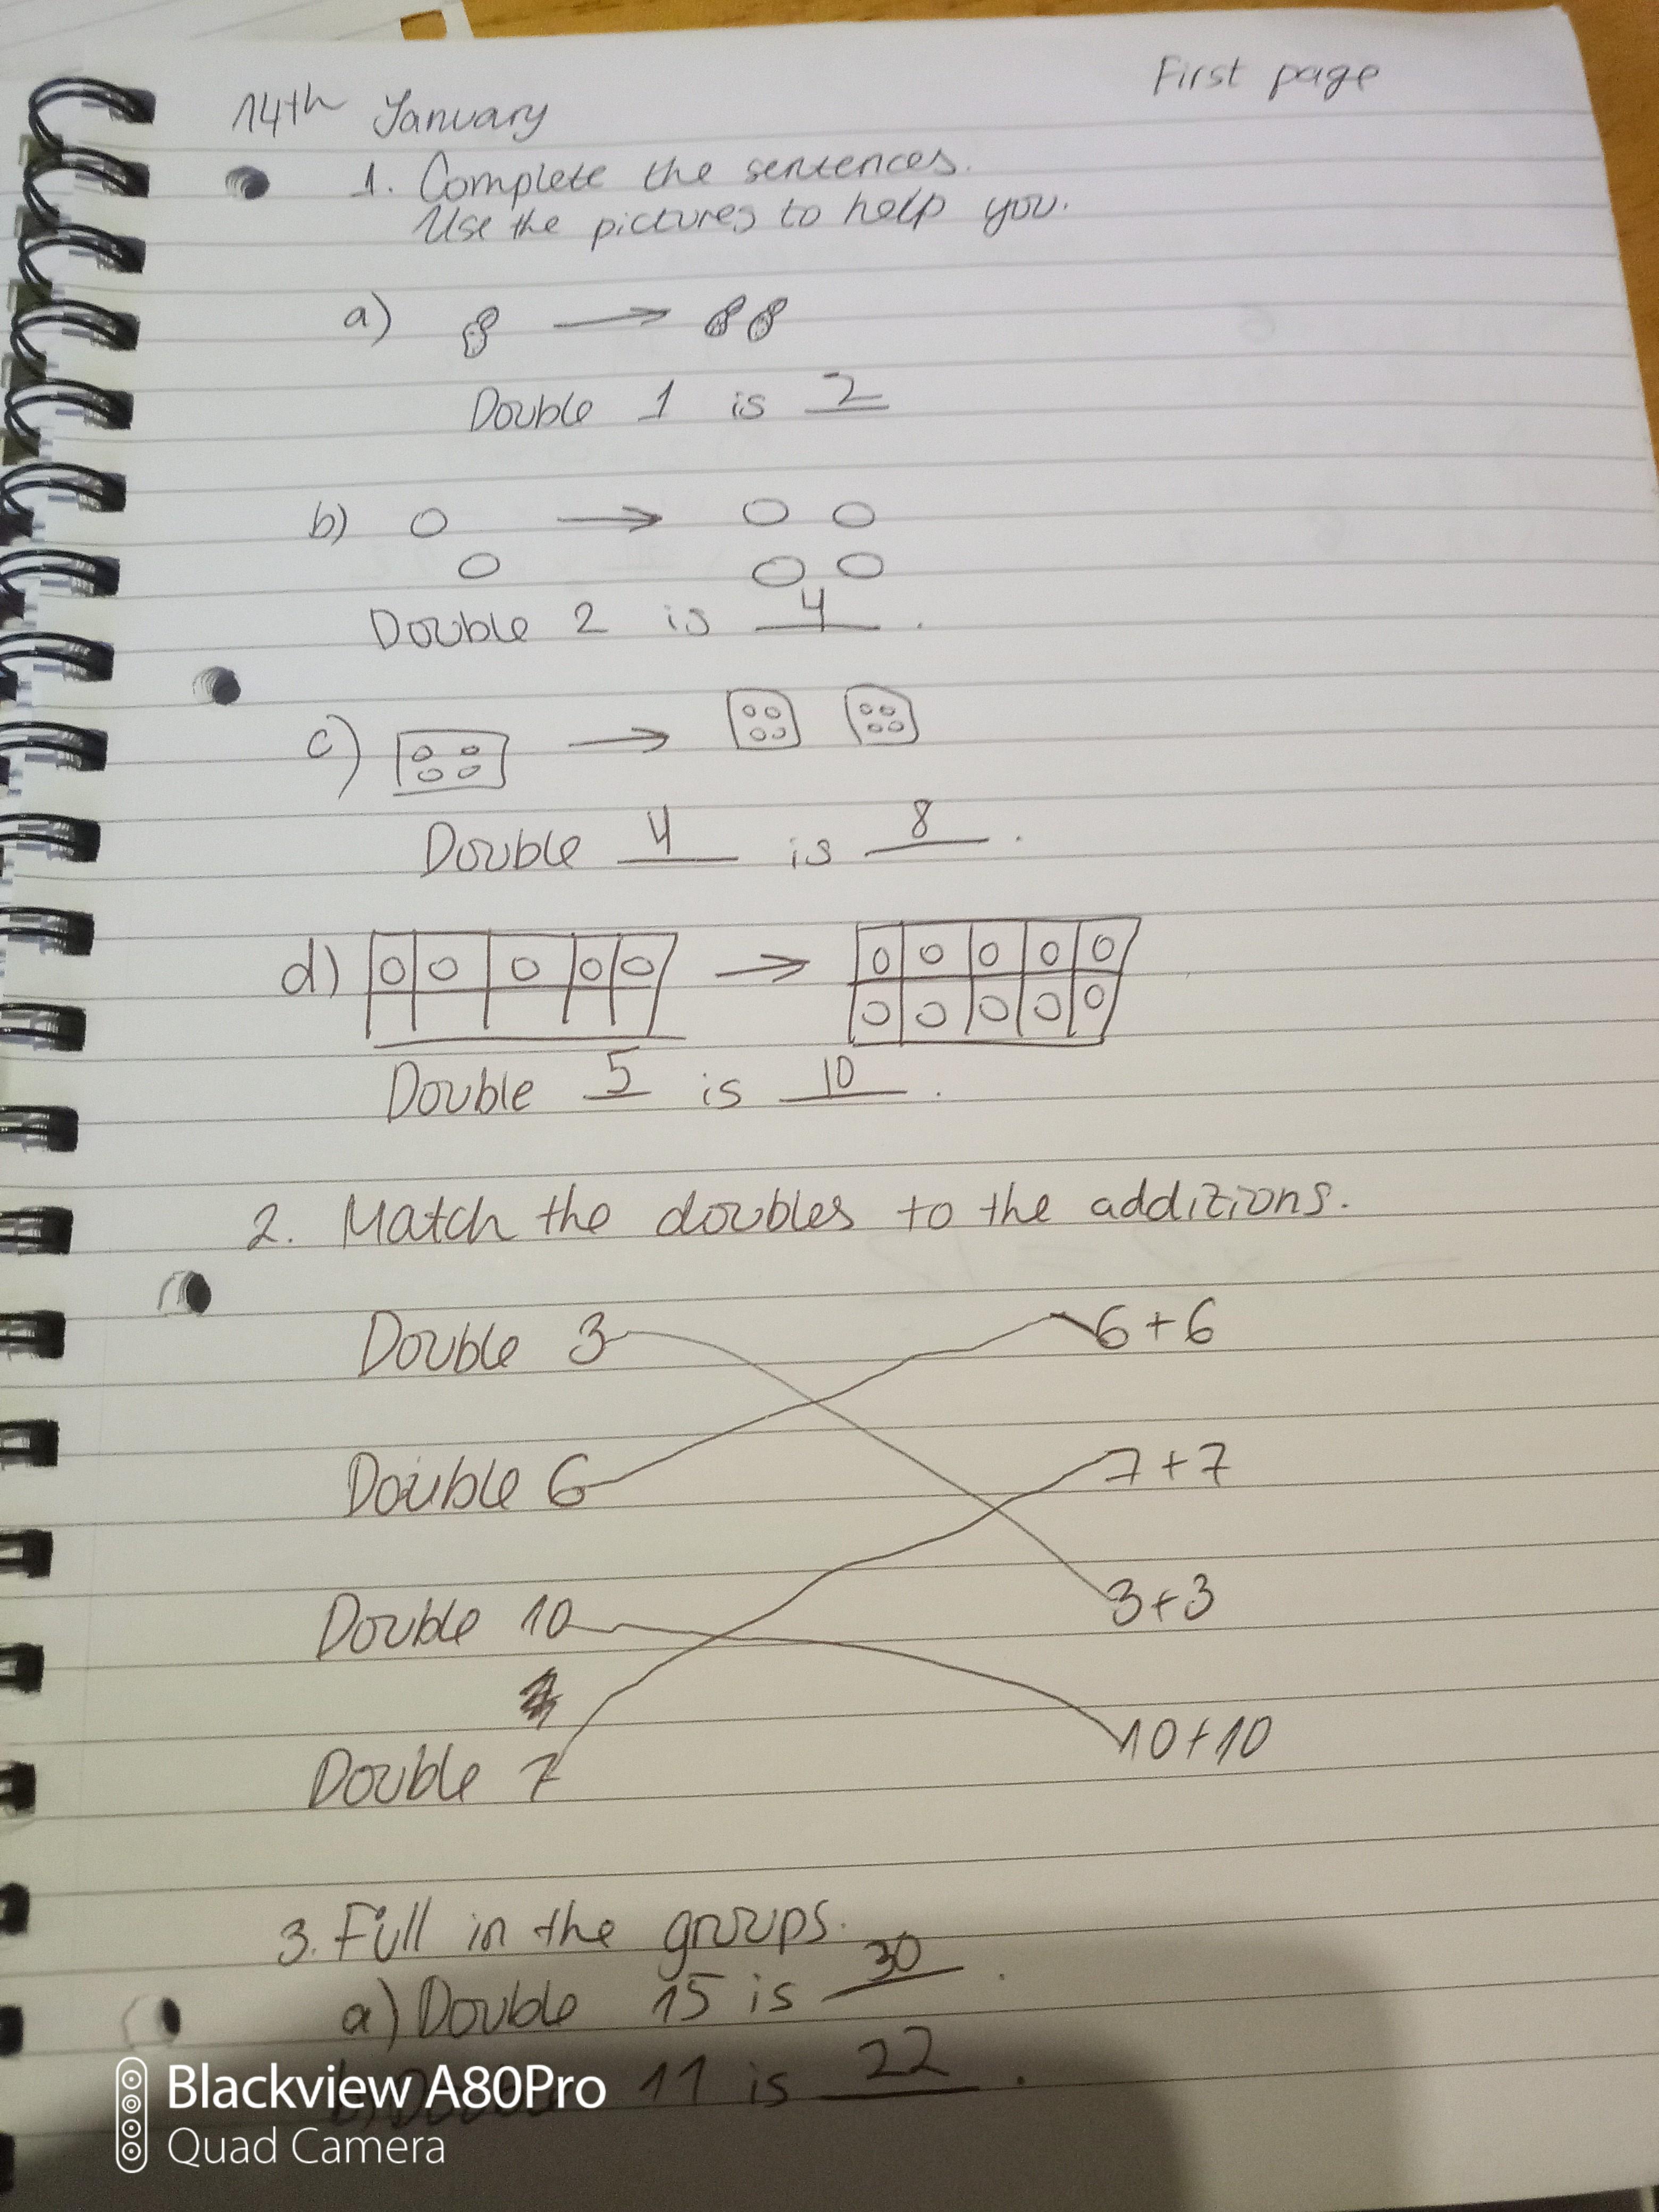 First page
14th January
1. Complete the sentences.
Use the pictures to help you.
a)
Double 1 is 2
b)
Double 2 is 4.
c)
Double 4 is 8.
d)
Double 5 is 10.
2. Match the doubles to the additions.
Double 3 6+6
Double 6 7+7
Double 10 3+3
Double 7 10+10
3. Fill in the groups.
a) Double 15 is 30.
b) Double 11 is 22.
Blackview A80Pro
Quad Camera